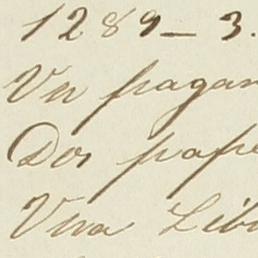 1289 - 3.
Un pagar
Dos pape
Una Libr